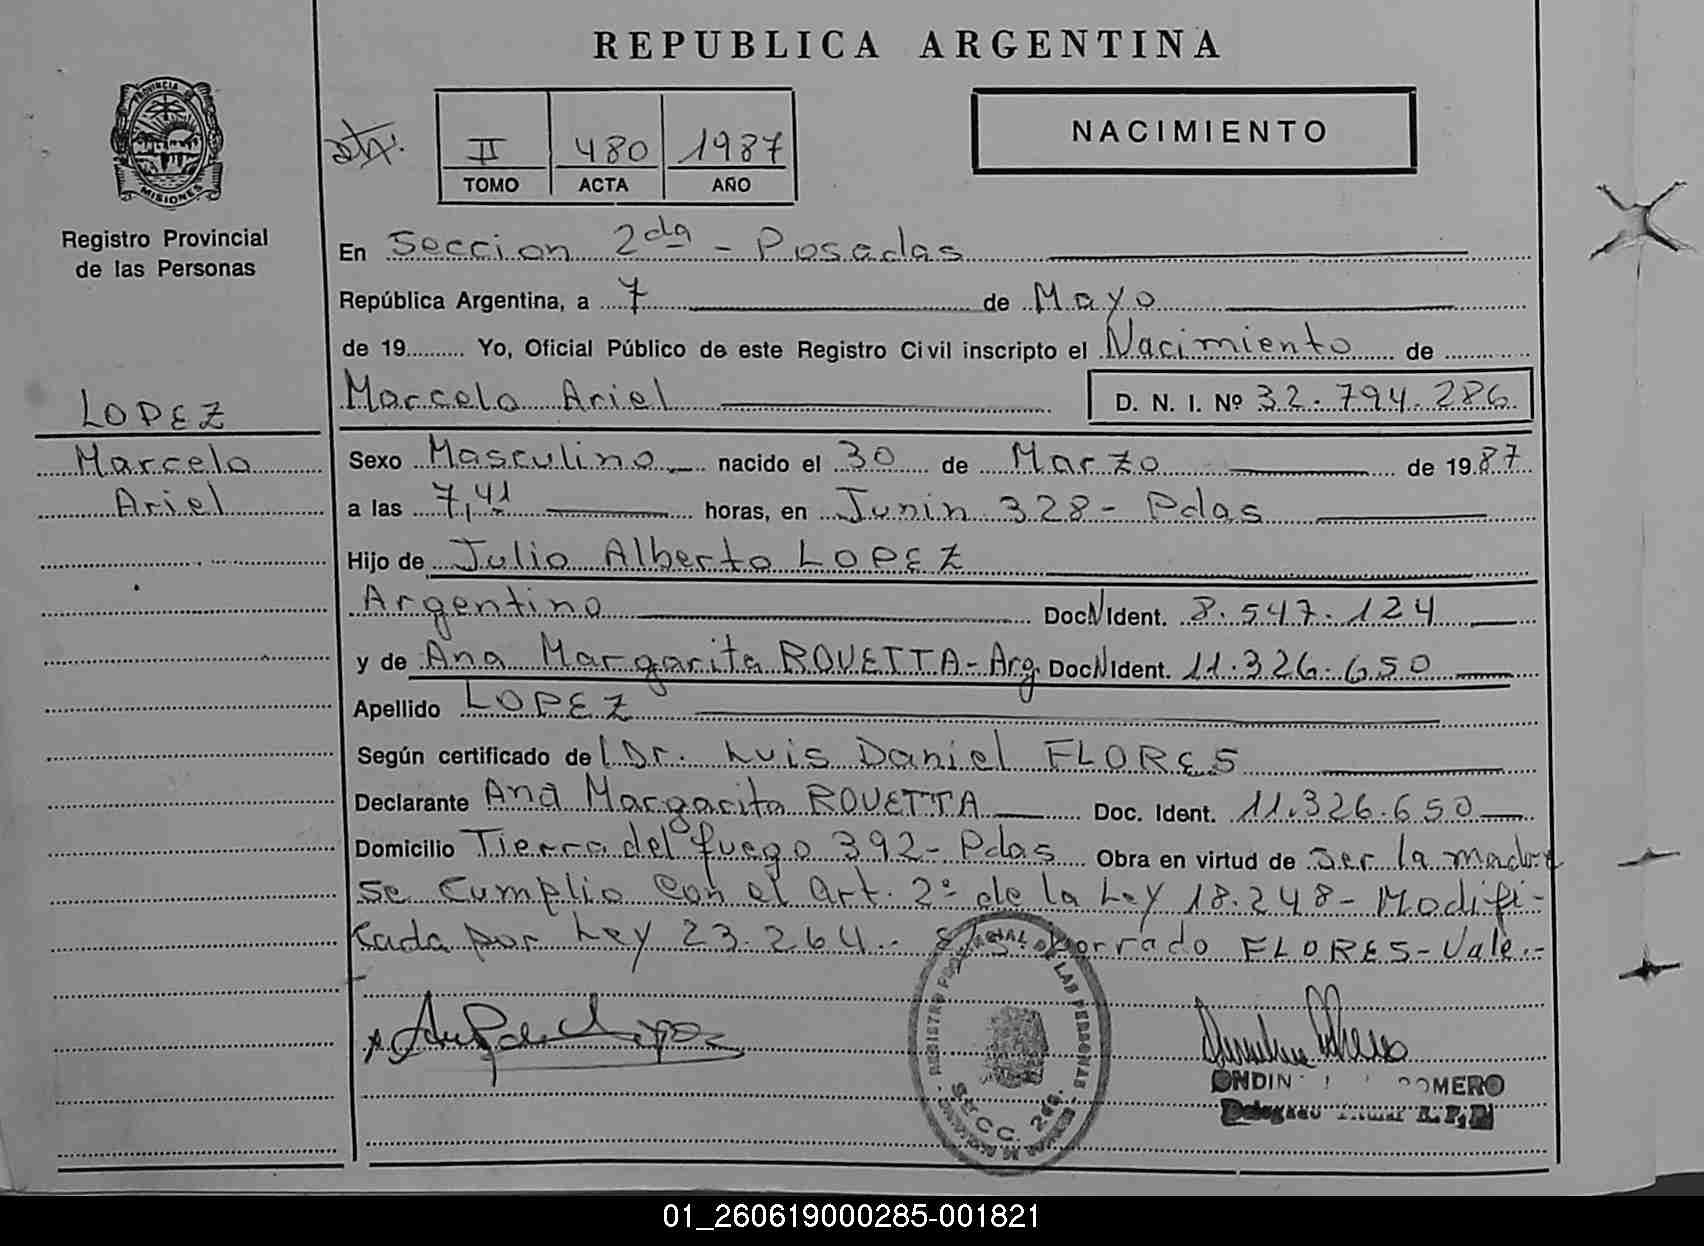 REPUBLICA ARGENTINA
PROVINCIA DE
MISIONES
Registro Provincial
de las Personas
II 480 1987
TOMO ACTA AÑO
NACIMIENTO
En Seccion 2da - Posadas
República Argentina, a 7 de Mayo
de 19 Yo, Oficial Público de este Registro Civil inscripto el Nacimiento de
Marcelo Ariel D. N. I. Nº 32.794.286
LOPEZ
Marcelo
Ariel
Sexo Masculino nacido el 30 de Marzo de 1987
a las 7,41 horas, en Junin 328 - Pdas
Hijo de Julio Alberto LOPEZ
Argentino Doc N Ident. 8.547.124
y de Ana Margarita ROVETTA - Arg. Doc N Ident. 11.326.650
Apellido LOPEZ
Según certificado de Dr. Luis Daniel FLORES
Declarante Ana Margarita ROVETTA Doc. Ident. 11.326.650
Domicilio Tierra del fuego 392 - Pdas Obra en virtud de ser la madre
Se Cumplio con el Art. 2º de la Ley 18.248 - Modifi-
cada por Ley 23.264.- borrado FLORES - Vale.-
REGISTRO PROVINCIAL DE LAS PERSONAS
SECC. 2da.
ROMERO
Delegado
01_260619000285-001821